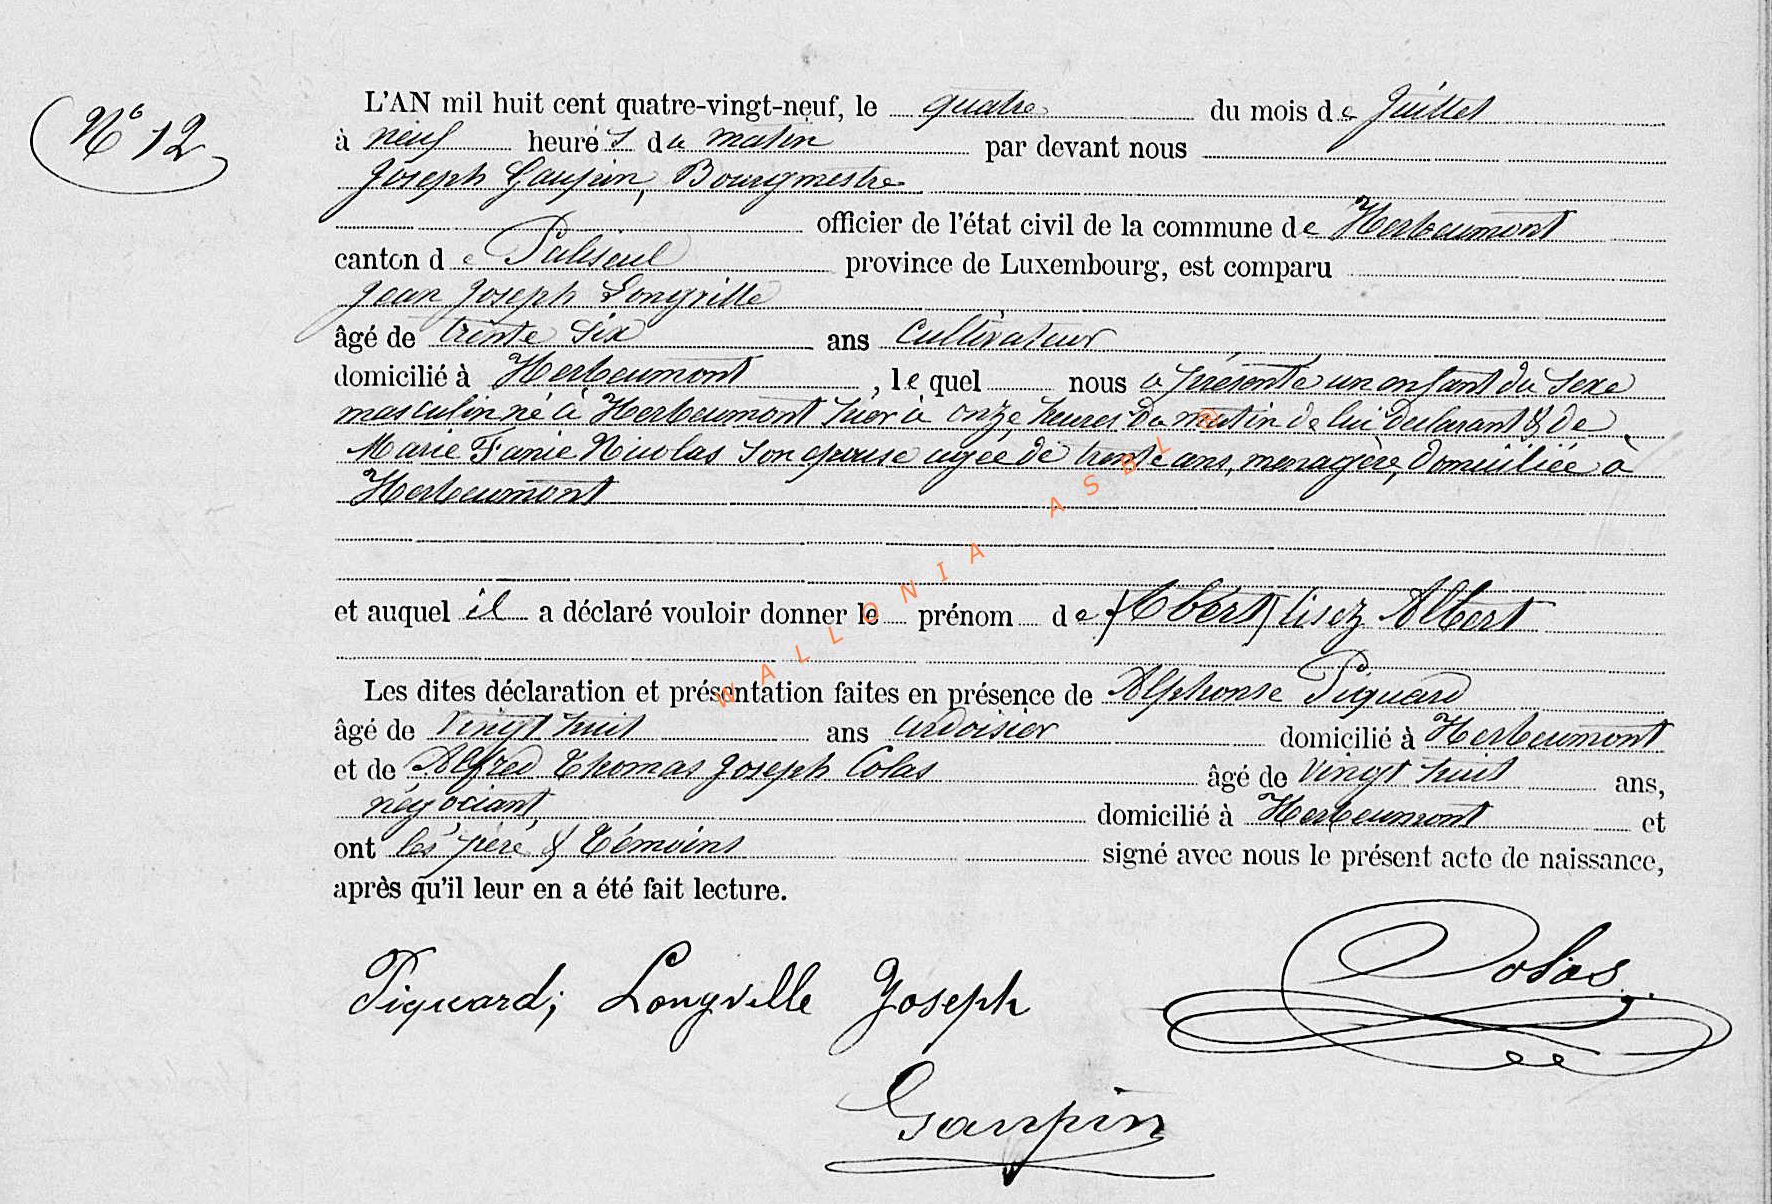 N° 12
L'AN mil huit cent quatre-vingt-neuf, le quatre du mois de Juillet
à neuf heures du matin par devant nous
Joseph Gaupin, Bourgmestre
officier de l'état civil de la commune de Herbeumont
canton de Paliseul province de Luxembourg, est comparu
Jean Joseph Longville
âgé de trente six ans cultivateur
domicilié à Herbeumont, lequel nous a présenté un enfant du sexe
masculin né à Herbeumont hier à onze heures du matin de lui déclarant & de
Marie Fanie Nicolas son épouse agée de trente ans, menagère, domiciliée à
Herbeumont
et auquel il a déclaré vouloir donner le prénom de (Obert) lisez Albert
Les dites déclaration et présentation faites en présence de Alphonse Piquard
âgé de vingt huit ans ardoisier domicilié à Herbeumont
et de Alfred Thomas Joseph Colas âgé de vingt huit ans,
négociant, domicilié à Herbeumont et
ont les père & témoins signé avec nous le présent acte de naissance,
après qu'il leur en a été fait lecture.
Piquard; Longville Joseph Colas
Gaupin
WALLONIA ASBL ®